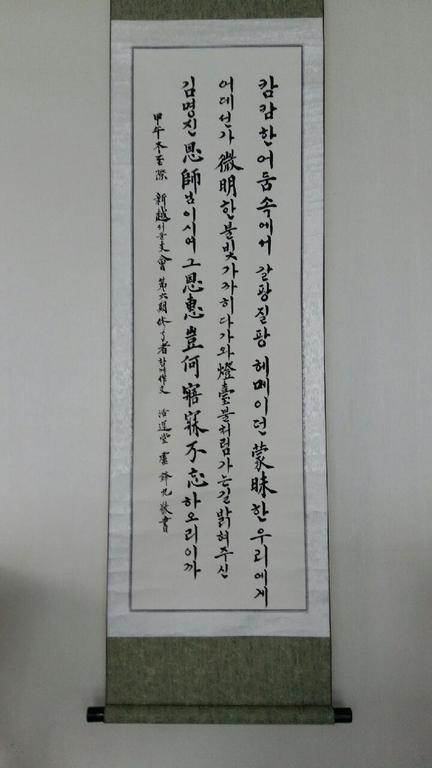 캄캄한어둠속에서 갈팡질팡 헤메이던蒙昧한우리에게
어데선가微明한불빛가까히다가와燈臺불처럼가는길밝혀주신
김명진恩師님이시여그恩惠豈何寤寐不忘하오리이까
甲午冬至際 新越서울文會 第六期修了者 作文 堂 書